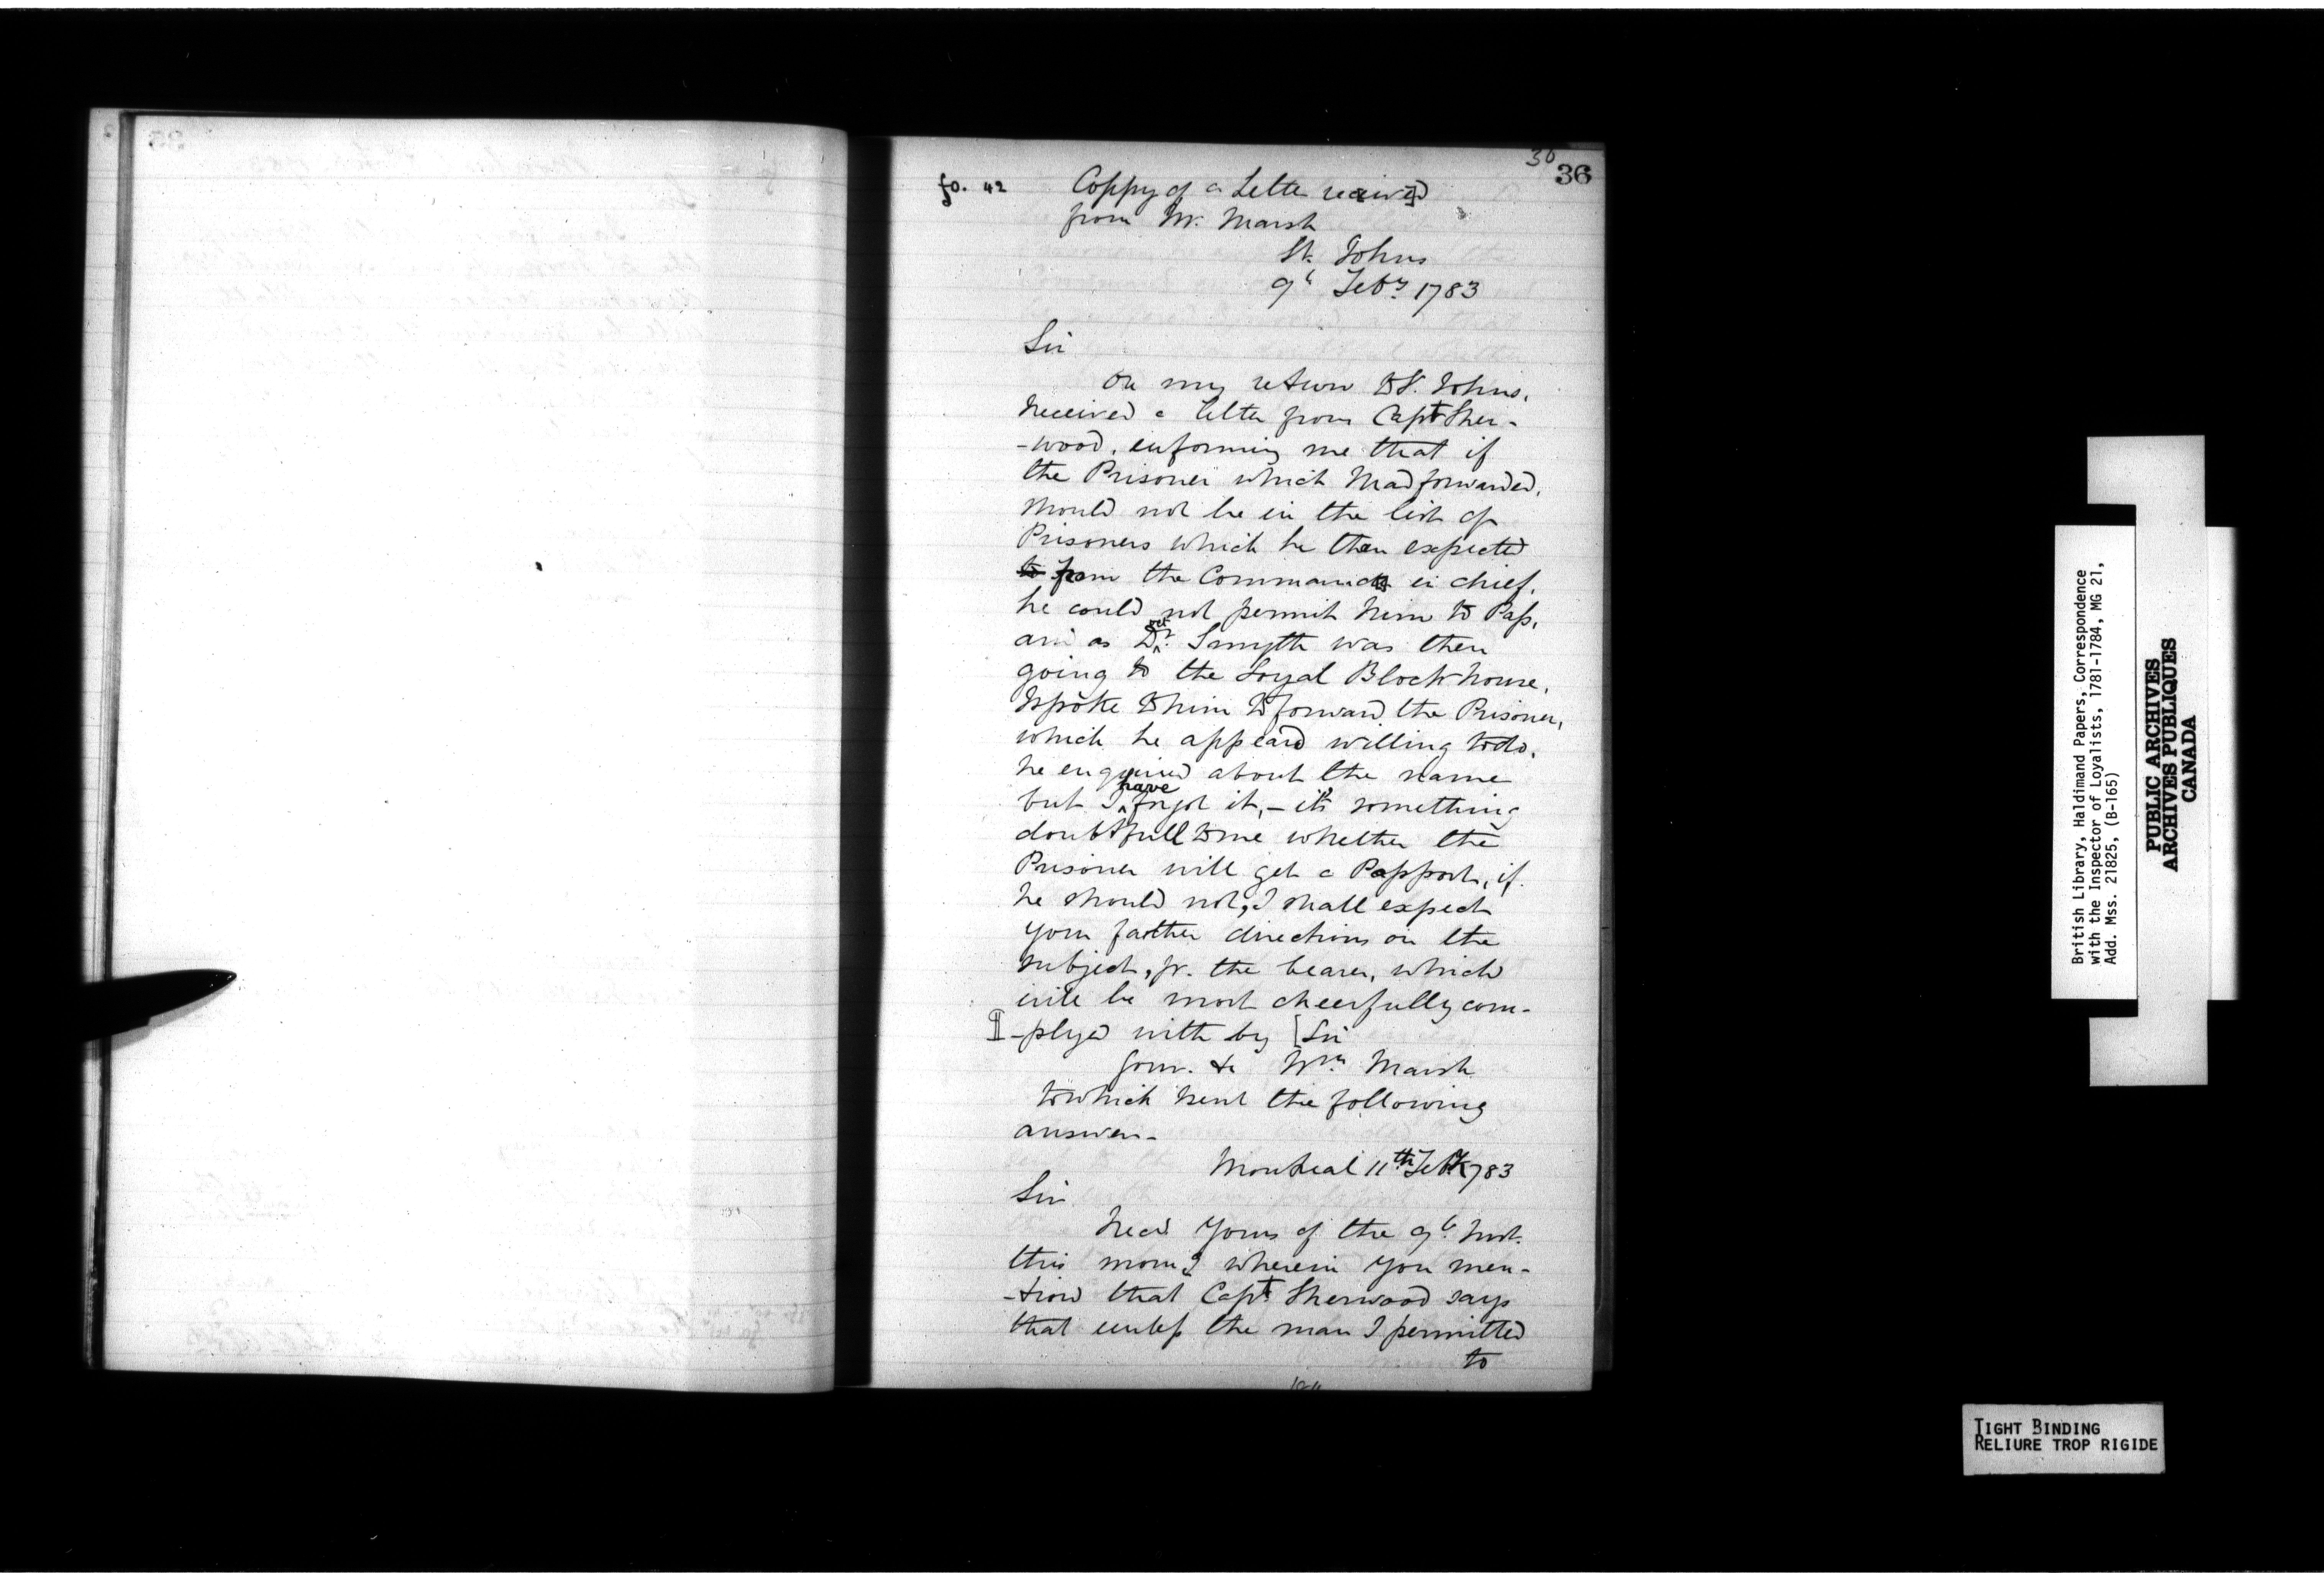 36
36
fo. 42
Coppy of a Letter received
from Mr. Marsh
St. Johns
9th Feby 1783
Sir
On my return to St. Johns,
Received a letter from Capt Sher-
-wood, enforming me that if
the Prisoner which I had forwarded,
should not be in the list of
Prisoners which he then expected
to from the Commander in chief,
he could not permit him to Pass,
and as Dr. Smyth was then
going to the Loyal Block house,
I spoke to him to forward the Prisoner,
which he appeard willing to do,
he enquired about the name
but I have forgot it, - it's something
doubtfull to me whether the
Prisoner will get a Passport, if
he should not, I shall expect
your farther directions on the
subject, pr. the bearer, which
will be most cheerfully com-
-plyed with by [Sir
Your. &c Wm. Marsh
to which I sent the following
answer -
Montreal 11th Feby 1783
Sir
Recd Yours of the 9th Inst.
this morng wherein you men-
-tion that Capt Sherwood says
that unless the man I permitted
to
British Library, Haldimand Papers, Correspondence
with the Inspector of Loyalists, 1781-1784, MG 21,
Add. Mss. 21825, (B-165)
PUBLIC ARCHIVES
ARCHIVES PUBLIQUES
CANADA
TIGHT BINDING
RELIURE TROP RIGIDE